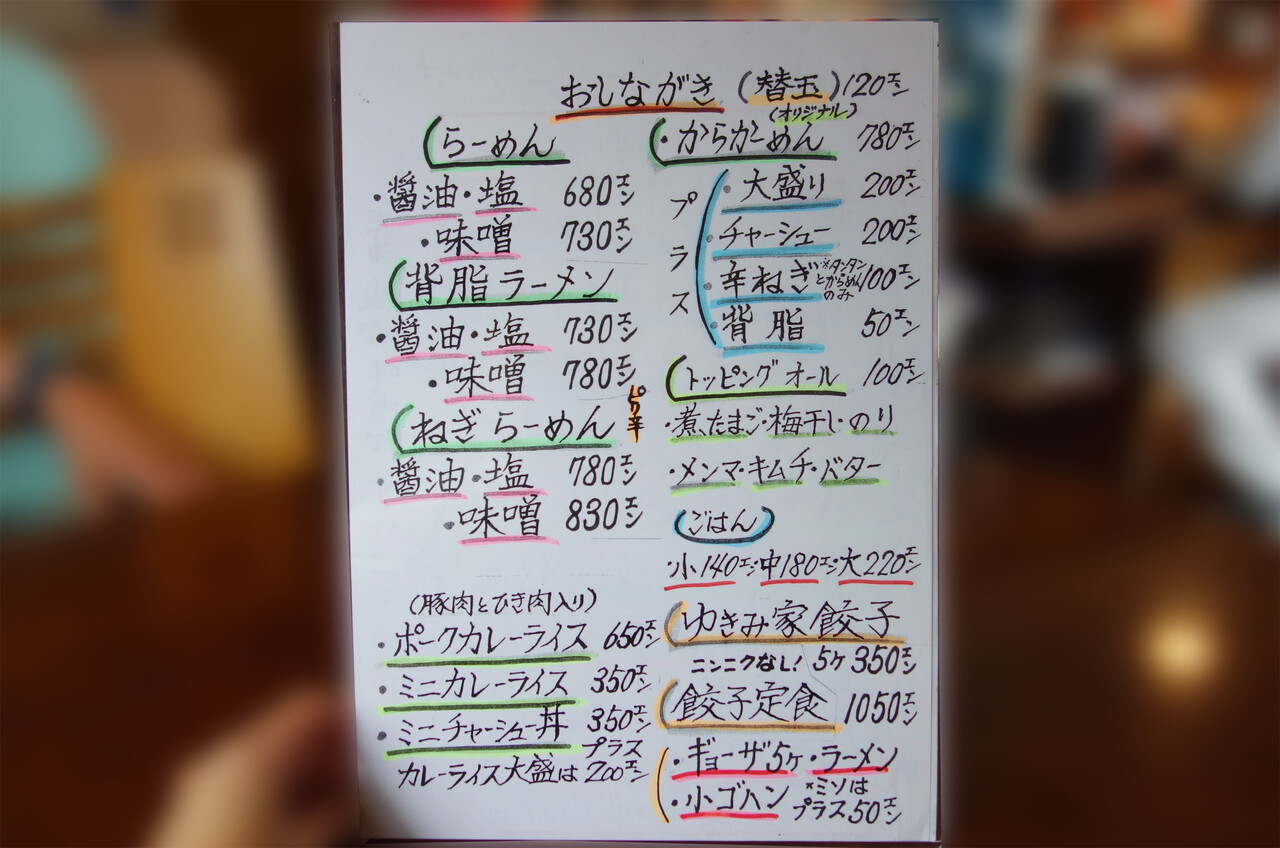 おしながき (替玉) 120エン
(らーめん
・醤油・塩 680エン
・味噌 730エン
(背脂ラーメン
・醤油・塩 730エン
・味噌 780エン
(ねぎらーめん ピリ辛
・醤油・塩 780エン
・味噌 830エン
(豚肉とひき肉入り)
・ポークカレーライス 650エン
・ミニカレーライス 350エン
・ミニチャーシュー丼 350エン
プラス
カレーライス大盛は 200エン
(オリジナル)
(・からかーめん 780エン
プラス
・大盛り 200エン
・チャーシュー 200エン
・辛ねぎ ※タンタンとからめんのみ 100エン
・背脂 50エン
(トッピングオール 100エン
・煮たまご・梅干し・のり
・メンマ・キムチ・バター
(ごはん)
小140エン 中180エン 大220エン
(ゆきみ家餃子
ニンニクなし! 5ケ 350エン
(餃子定食 1050エン
・ギョーザ5ケ・ラーメン
・小ゴハン *ミソは
プラス50エン